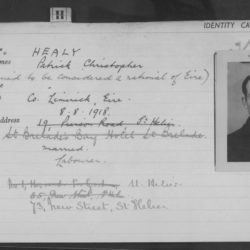 IDENTITY CA
HEALY
mes Patrick Christopher
to be considered a national of Eire)
Co. Limerick, Eire.
8.8.1918.
Address 19 Road, St Helier.
St Brelades Bay Hotel St Brelade
married.
Labourer.
No 1, St Helier.
New Street, St Helier
73, New Street, St Helier